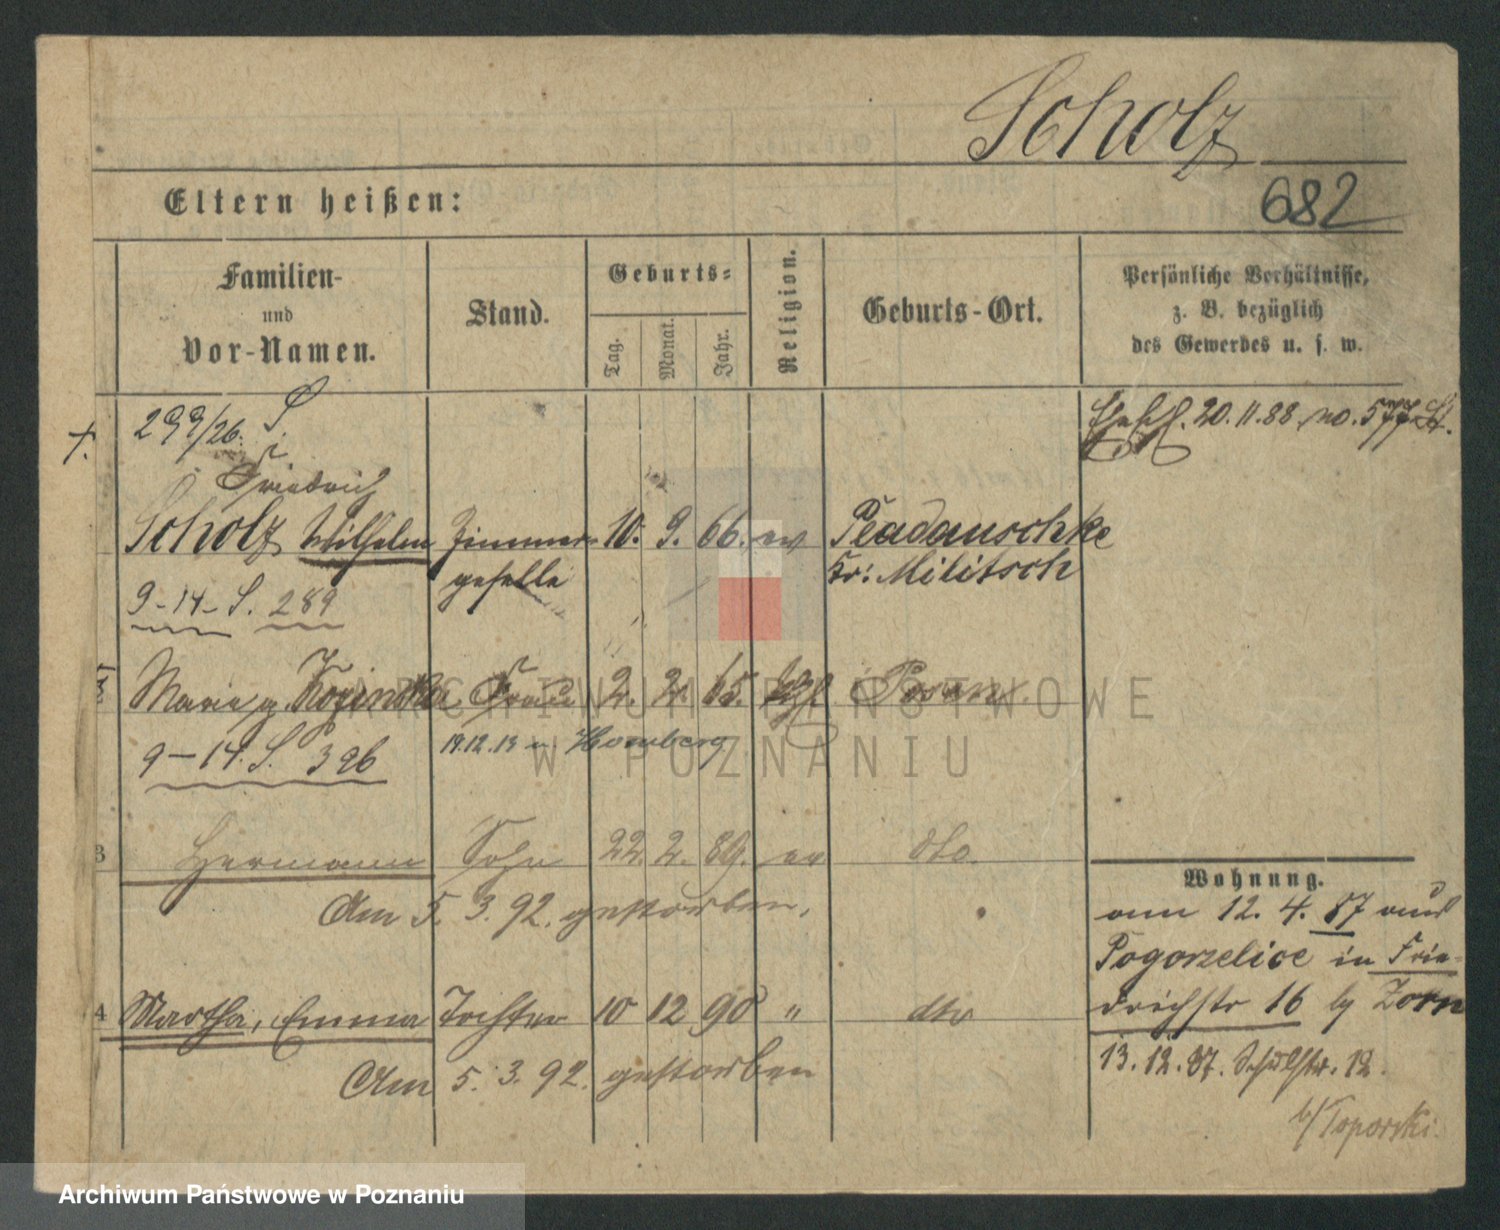 Scholz
682
Eltern heißen:
Familien- und Vor-Namen.
Stand.
Geburts-
Tag.
Monat.
Jahr.
Religion.
Geburts-Ort.
Persönliche Verhältnisse,
z. B. bezüglich
des Gewerbes u. s. w.
299/26. S.
Ehesch. 20.11.88 no. 577 St.
Friedrich
Scholz Wilhelm Zimmer- 10. 9. 66. ev Peadauschke
geselle Kr: Militsch
9-14- S. 289
Marie g. Frau 2. 2. 65. Posen
9-14. S. 396
19.12.13 n. Homberg
3 Hermann Sohn 22. 2. 89. ev dto.
Am 5. 3. 92. gestorben,
4 Martha, Emma Tochter 10 12 90 " dto
Am 5. 3. 92. gestorben
Wohnung.
am 12. 4. 87 aus
Pogorzelice in Frie-
drichstr 16 by Zorn
13. 12. 87. Schulstr. 12.
b/ Toporski
ARCHIWUM PAŃSTWOWE
W POZNANIU
Archiwum Państwowe w Poznaniu